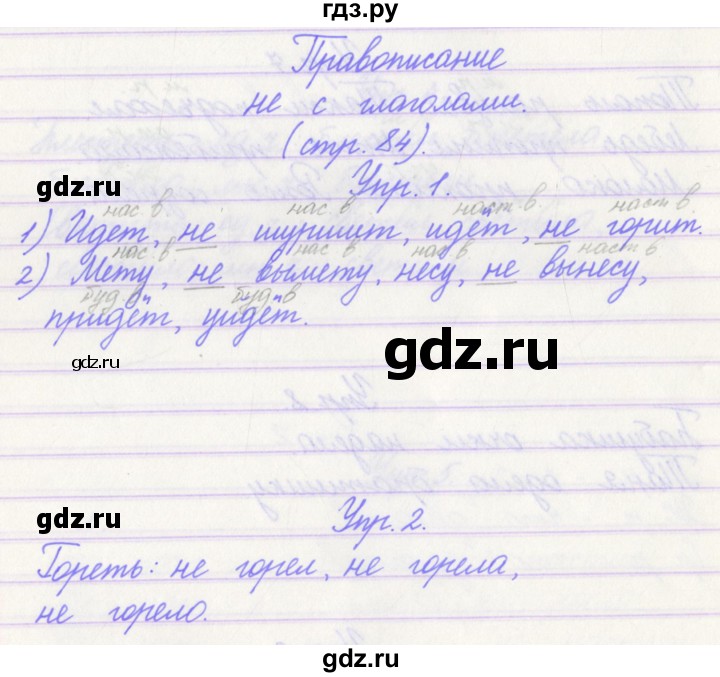 гдз.ру
Правописание
не с глаголами.
(стр. 84).
gdz.ru
Упр. 1.
нас. в нас. в наст. в наст. в
1) Идет, не шуршит, идёт, не горит.
нас. в нас. в нас. в наст. в
2) Мету, не вымету, несу, не вынесу,
буд. в буд. в
придёт, уйдёт.
gdz.ru
gdz.ru
gdz.ru
Упр. 2.
Гореть: не горел, не горела,
не горело.
gdz.ru